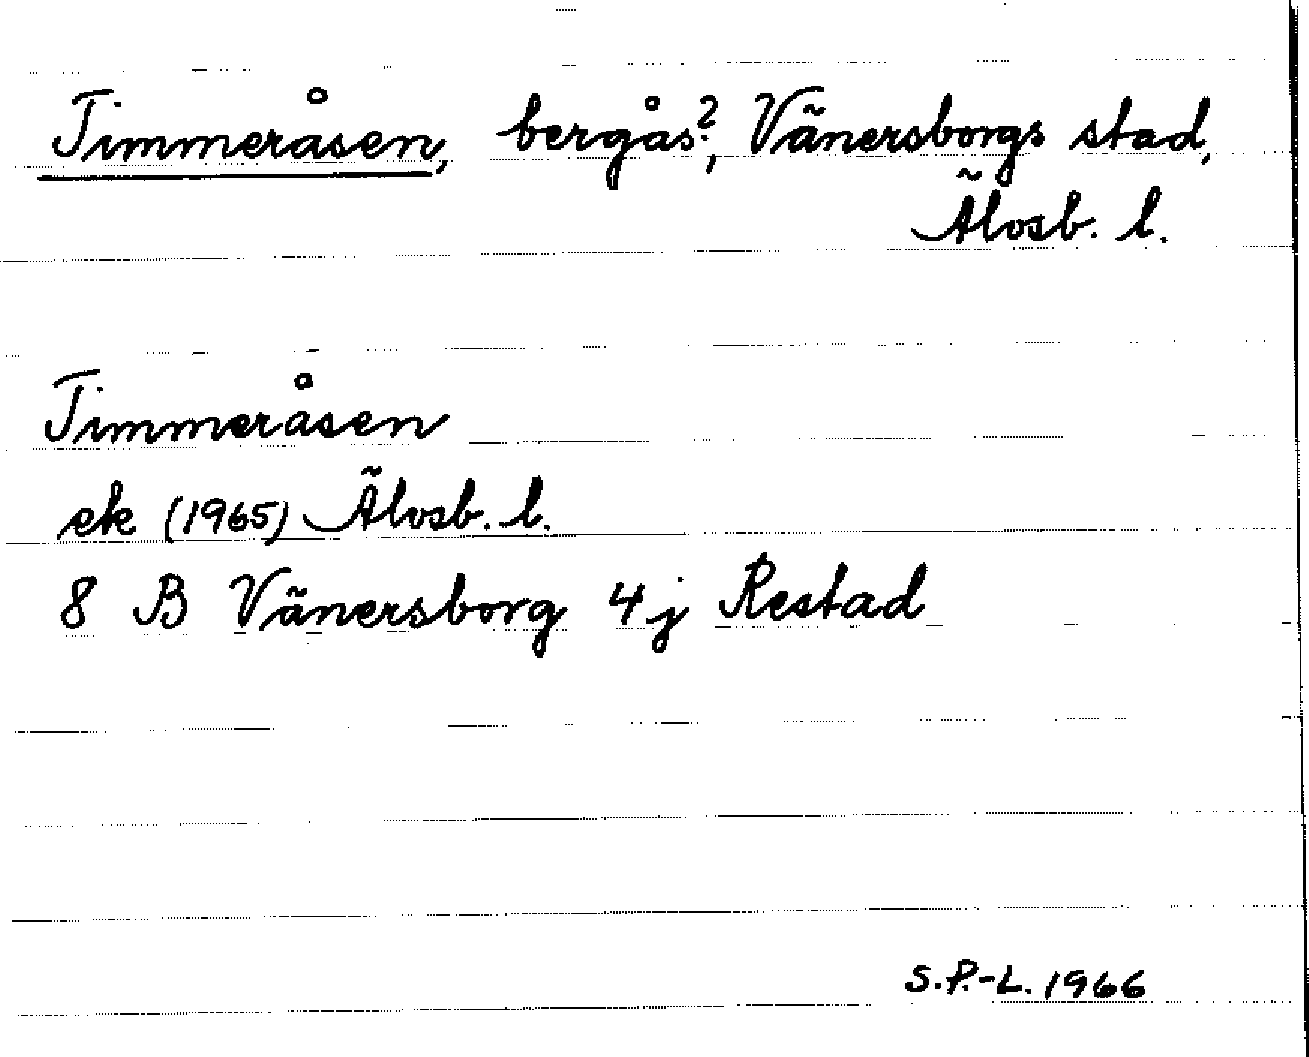 Timmeråsen, bergås?, Vänersborgs stad,
Älvsb. l.
Timmeråsen
ek (1965) Älvsb. l.
8 B Vänersborg 4j Restad
S.P.-L. 1966